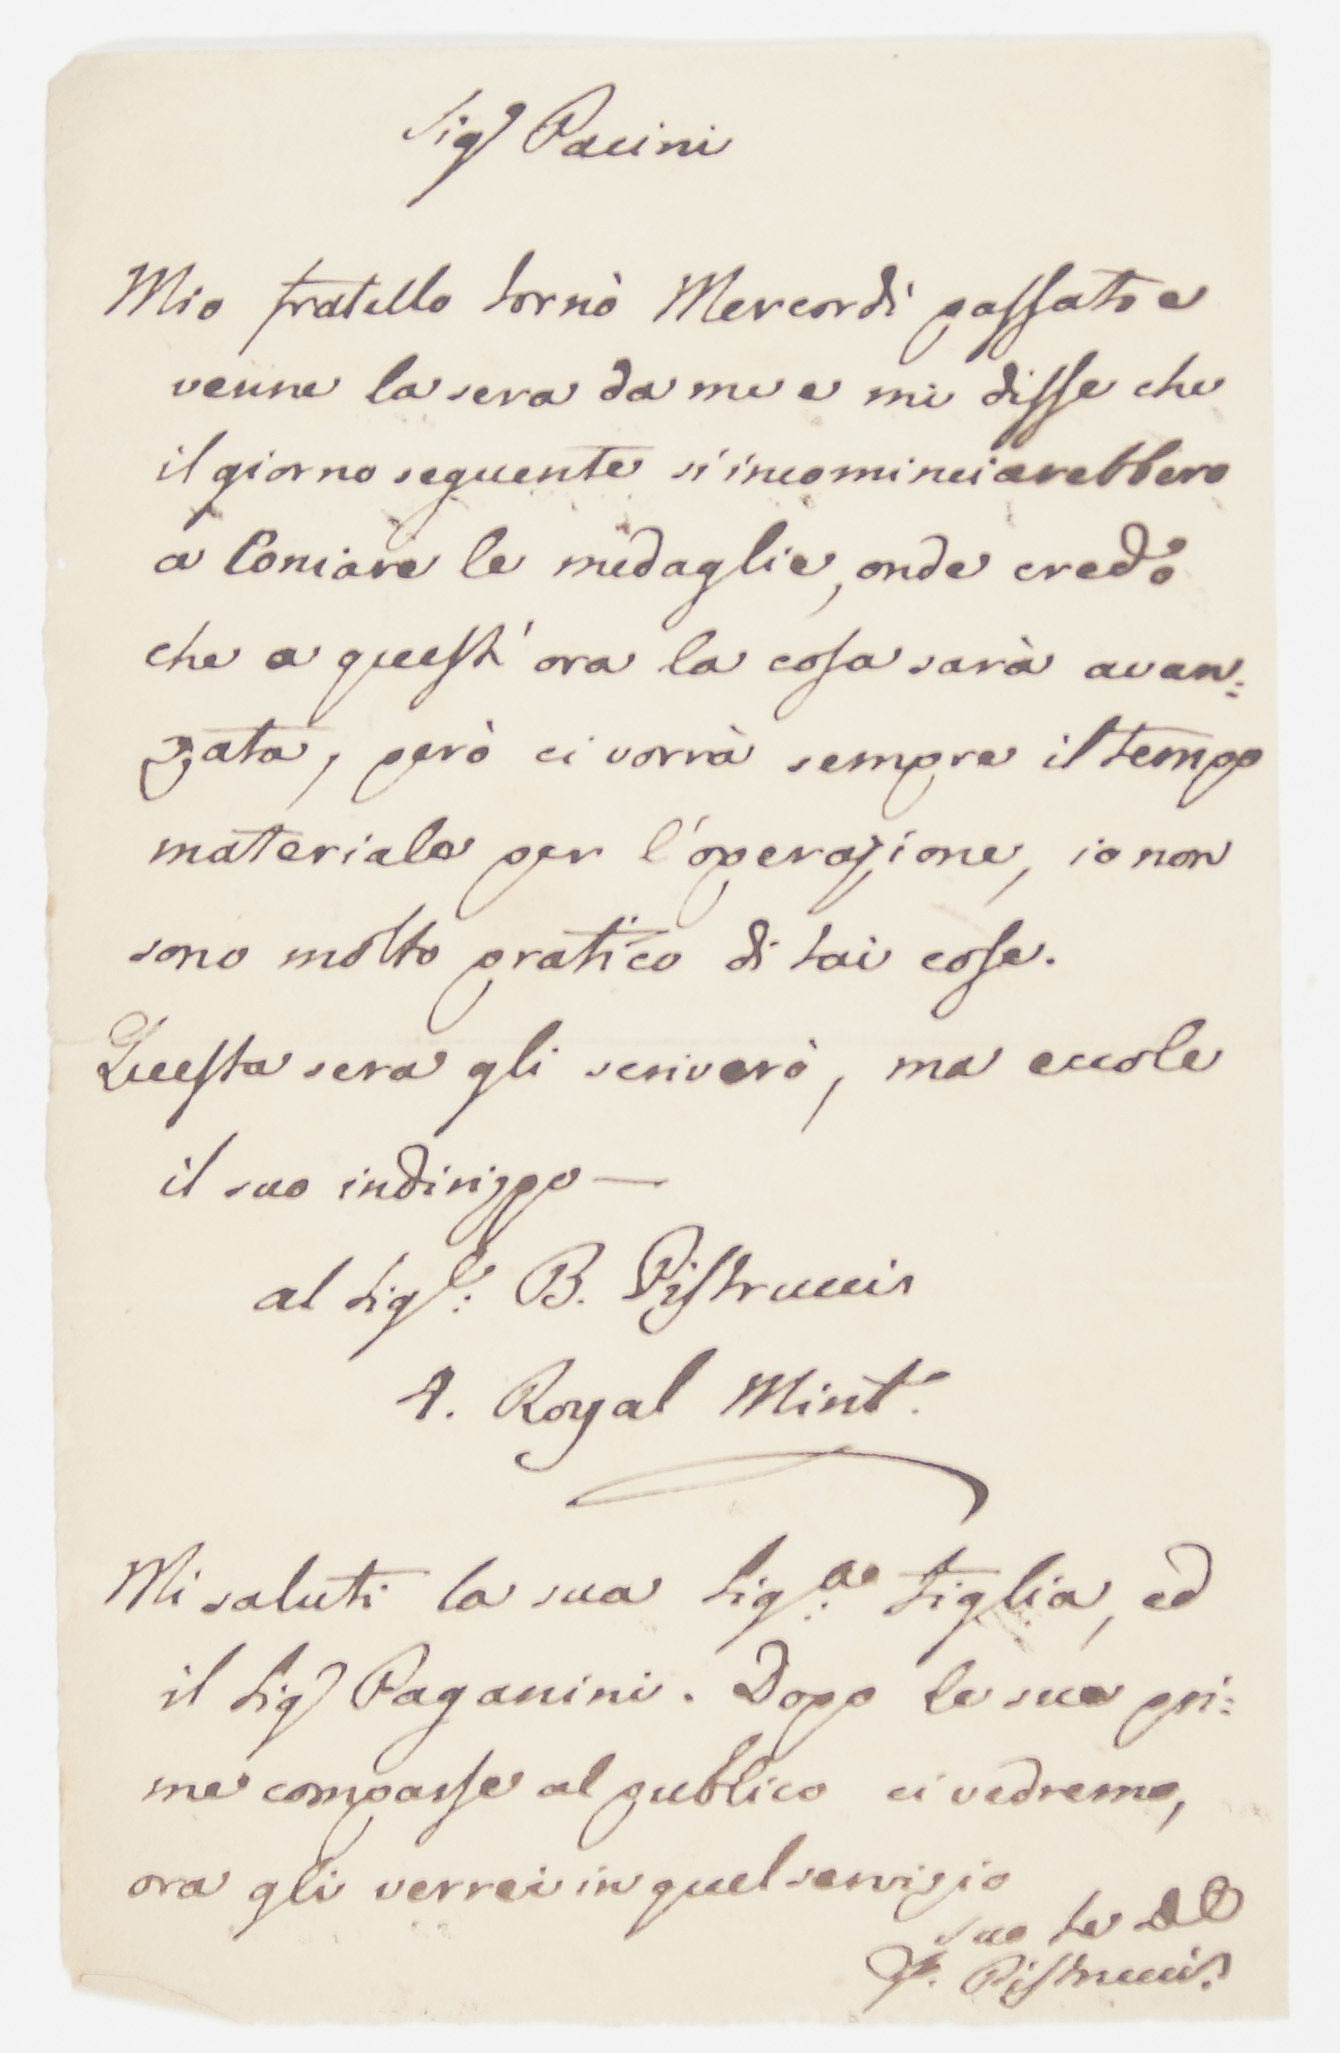 Sigr Pacini
Mio fratello tornò Mercordì passato e
venne la sera da me e mi disse che
il giorno seguente s'incominciarebbero
a Coniare le medaglie, onde credo
che a quest'ora la cosa sarà avan=
zata, però ci vorrà sempre il tempo
materiale per l'operazione, io non
sono molto pratico di tai cose.
Questa sera gli scriverò, ma eccole
il suo indirizzo —
al Sigr: B. Pistrucci
A. Royal Mint.
Mi saluti la sua Siga: Figlia, ed
il Sigr Paganini. Dopo le sue pri=
me comparse al publico ci vedremo,
ora gli verrei in quel servizio
Suo
F. Pistrucci